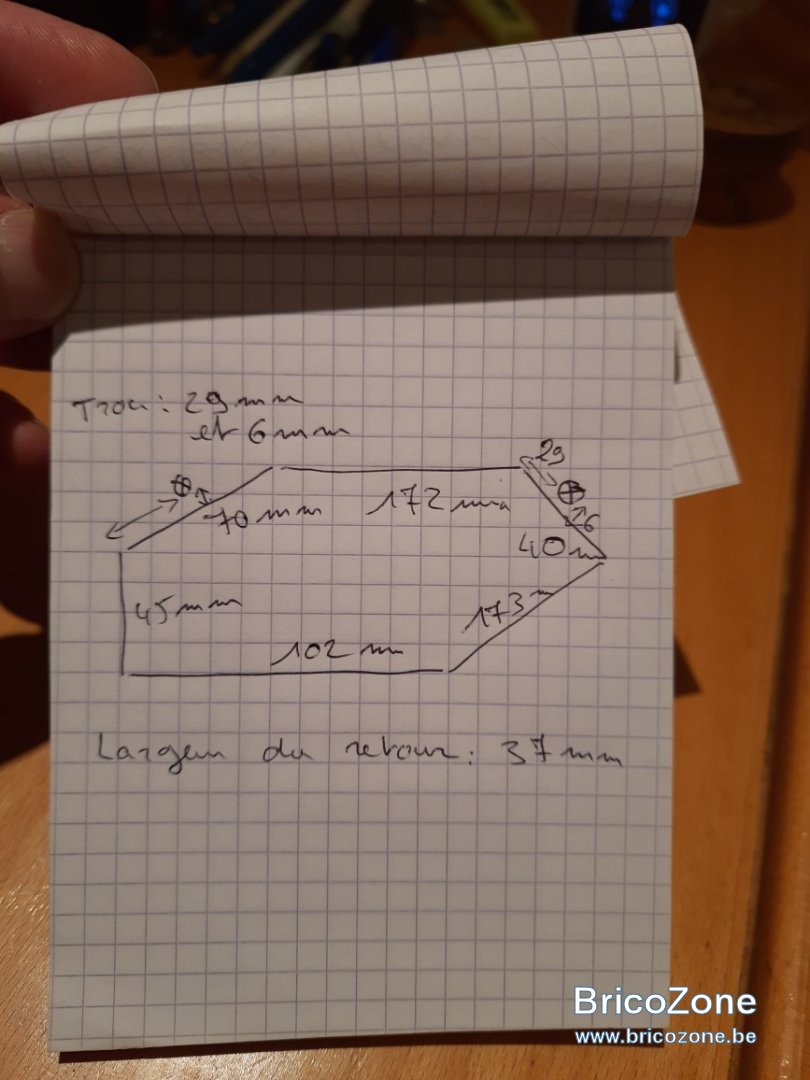 Trou: 29 mm
et 6 mm
29
70 mm
172 mm
6
40 m
45 mm
173 m
102 m
Largeur du retour: 37 mm
BricoZone
www.bricozone.be